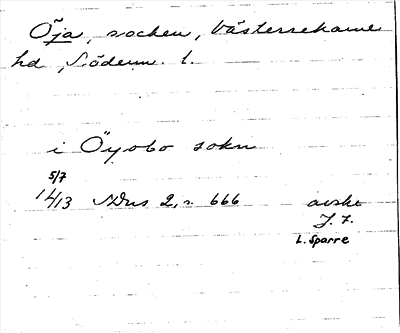 Öja, socken, Västerrekarne
hd, Söderm. l.
i Öyobo sokn
5/7
1413 SDns 2, s. 666 avskr
J. F.
L. Sparre